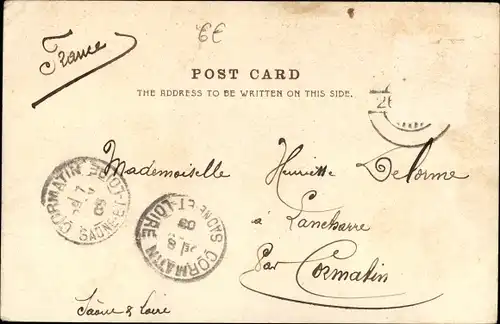 6E
France
POST CARD
THE ADDRESS TO BE WRITTEN ON THIS SIDE.
26
Mademoiselle Henriette Delorme
à Lancharre
Par Cormatin
Saône & Loire
CORMATIN
SAONE-ET-LOIRE
03
CORMATIN
SAONE-ET-LOIRE
8
03